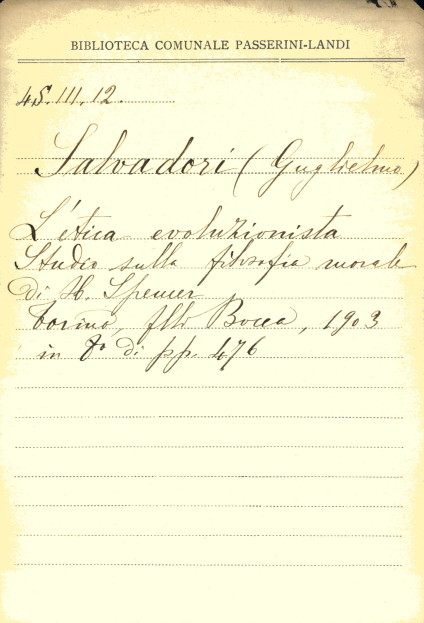 BIBLIOTECA COMUNALE PASSERINI-LANDI
45.III.12.
Salvadori (Guglielmo)
L'etica evoluzionista
Studio sulla filosofia morale
di H. Spencer
Torino, flli Bocca, 1903
in 8º di pp. 476